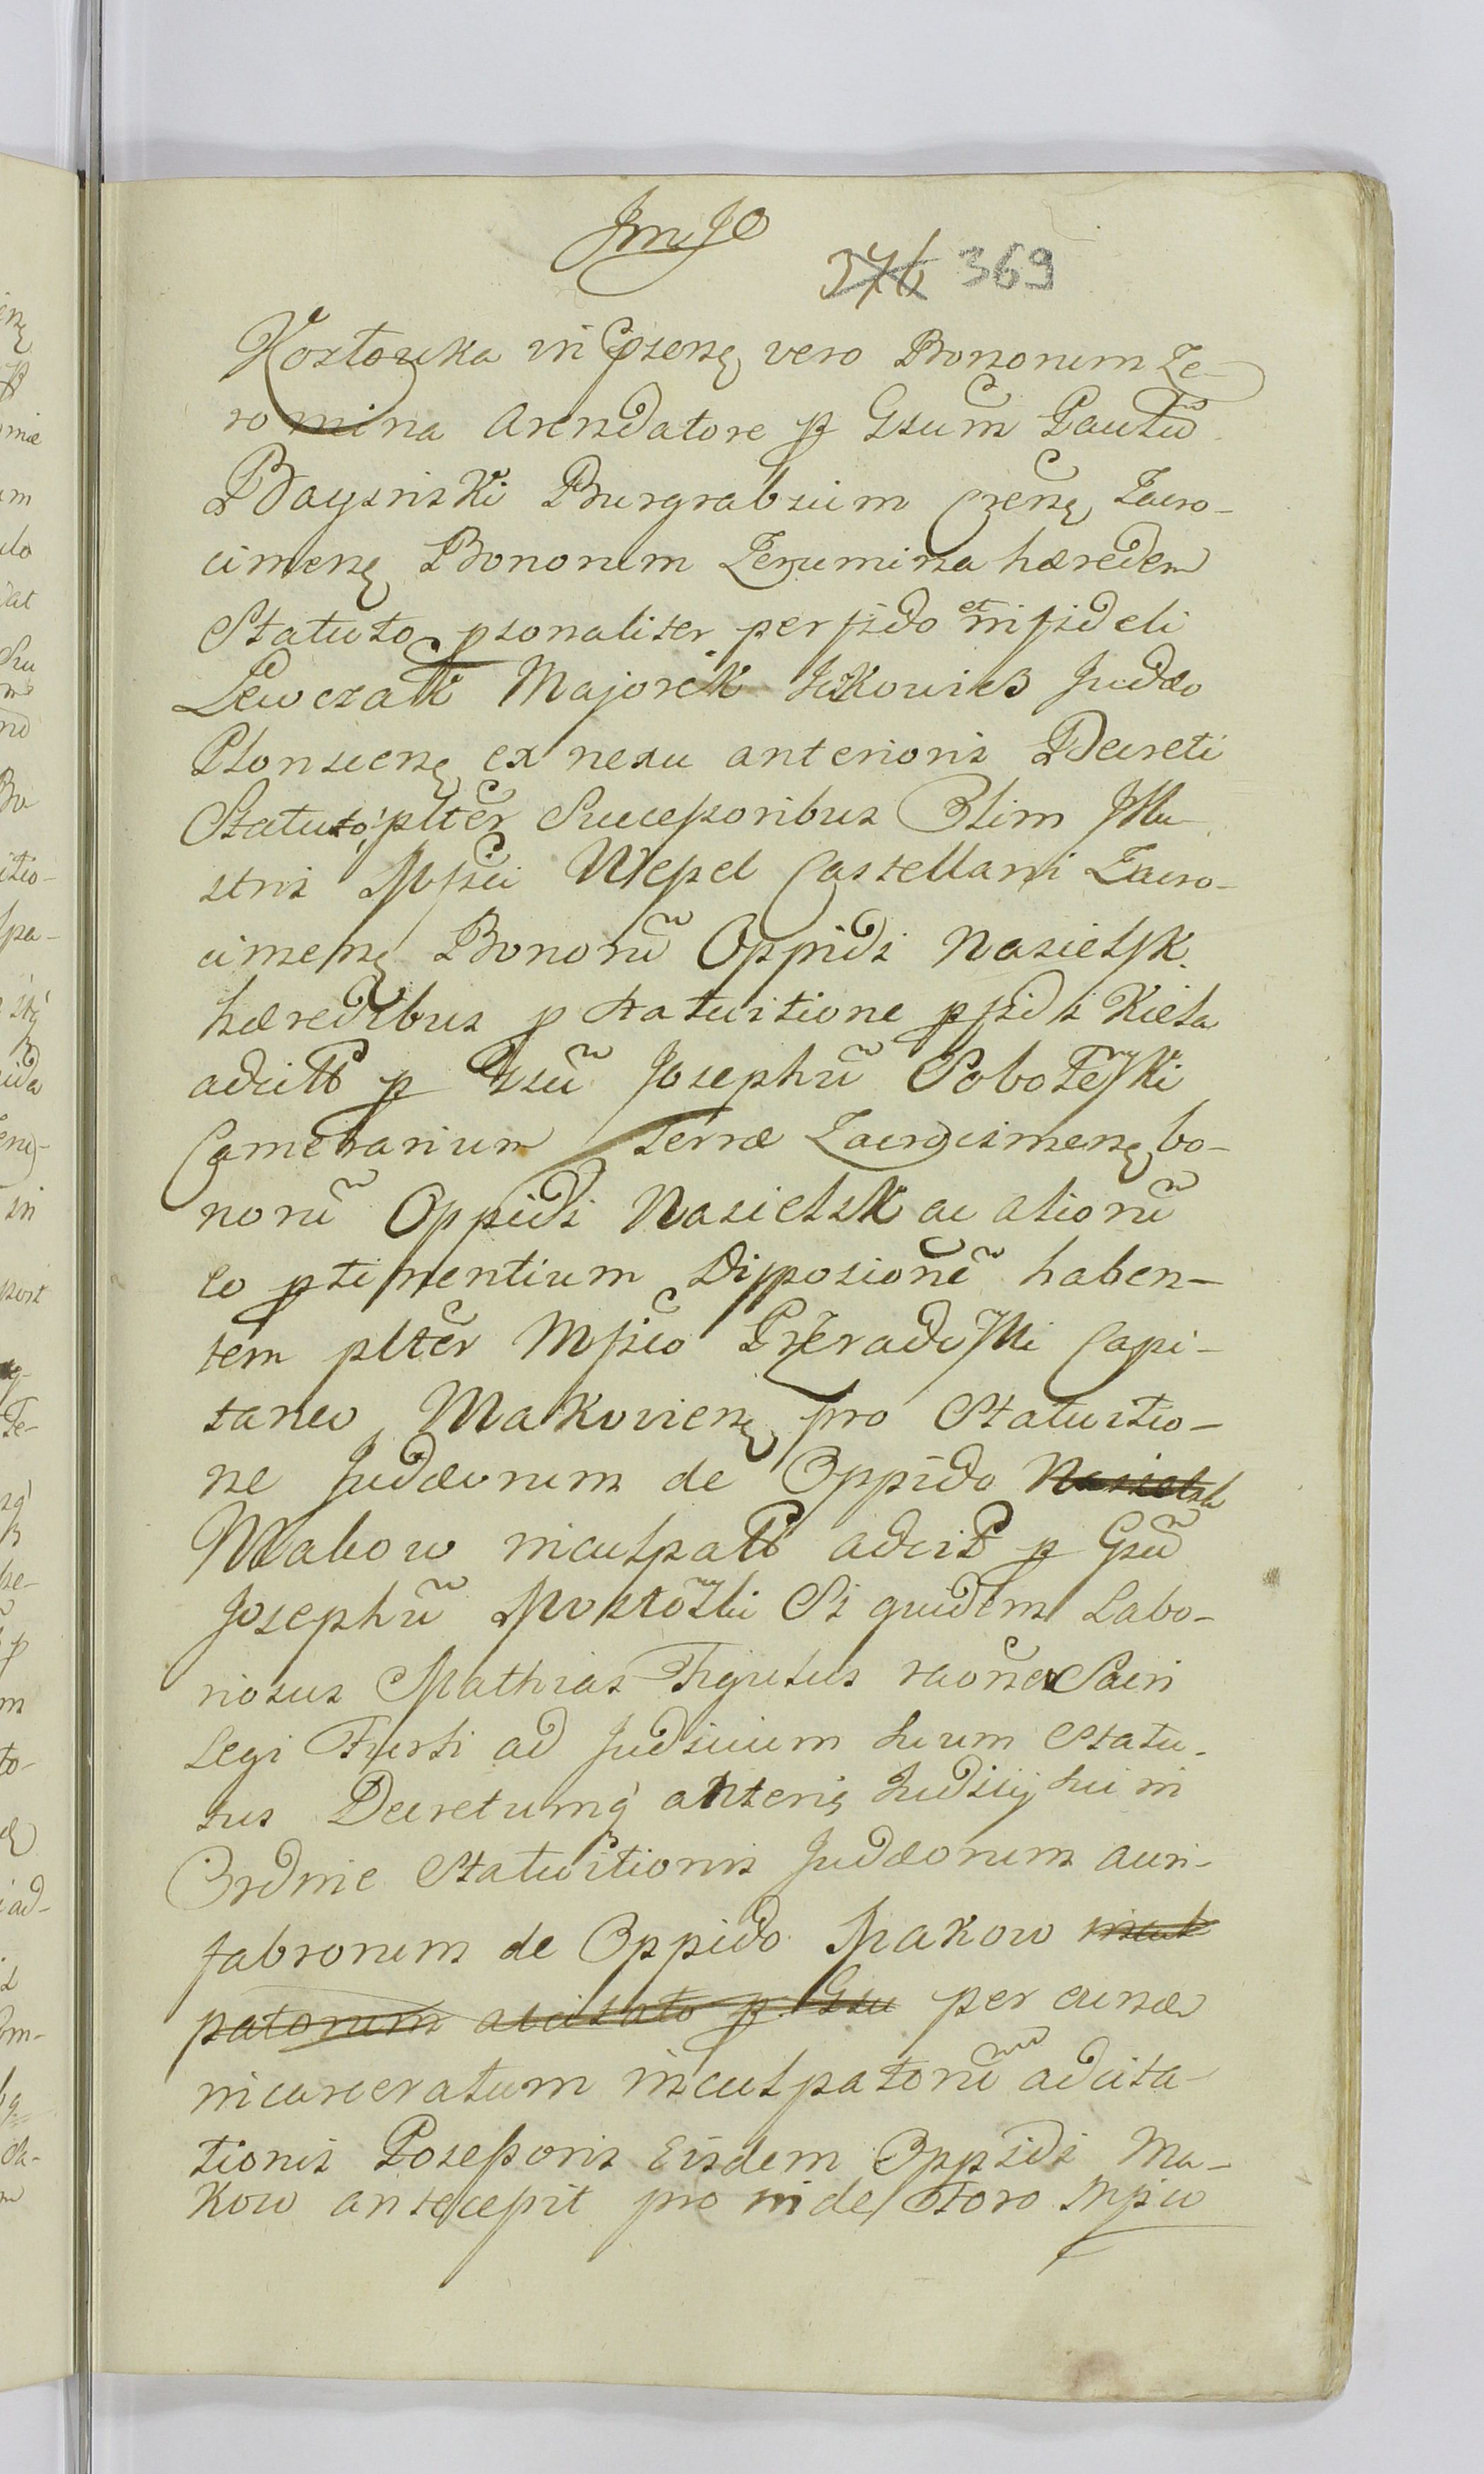 JmJo
376 369
Kozłowka in pñens vero Bonorum Ze-
romina Arendatore p Gsum Paulũ
Dayznski Burgrabium Czens Zacro-
cimens Bonorum Zerumina hæredem
Statuto psonaliter perfido et infideli
Lewczak Majorek Ickowicz Judæo
Plonscens ex nexu anterioris Decreti
Statuto, plter Successoribus Olim Illu-
stris Mfici Wessel Castellani Zacro-
cimens Bonorũ Oppidi Nasielsk
hæredibus p statuitione pfidi Kieta
adcitt p Gsũ Josephũ Sobolewski
Camerarium Terræ Zacrocimens bo-
norũ Oppidi Nasielsk ac aliorũ
eo ptinentium Disposionẽ haben-
tem plter Mfico Przeradzki Capi-
taneo Makoviens pro Statuitio-
ne Judæorum de Oppido Nasielsk
Makow inculpatt adcit p Gsũ
Josephũ Mostowski Si quidem Labo-
riosus Mathias Figulus raõne Sacri
Legi Furti ad Judicium suum Statu-
tus Decretumq anteris Judicij sui in
Ordine Statuitionis Judæorum auri-
fabrorum de Oppido Makow incul
patorum adcitato p Gsu per eund
incarceratum inculpatorũ adcita-
tionis Possessoris Eisdem Oppidi Ma-
kow antecepit pro inde Foro Mfico